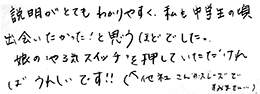 説明がとてもわかりやすく、私も中学生の頃
出会いたかった！と思うほどでした。
娘のやる気スイッチを押していただけれ
ばうれしいです！！（他社さんのフレーズで
すみません…）